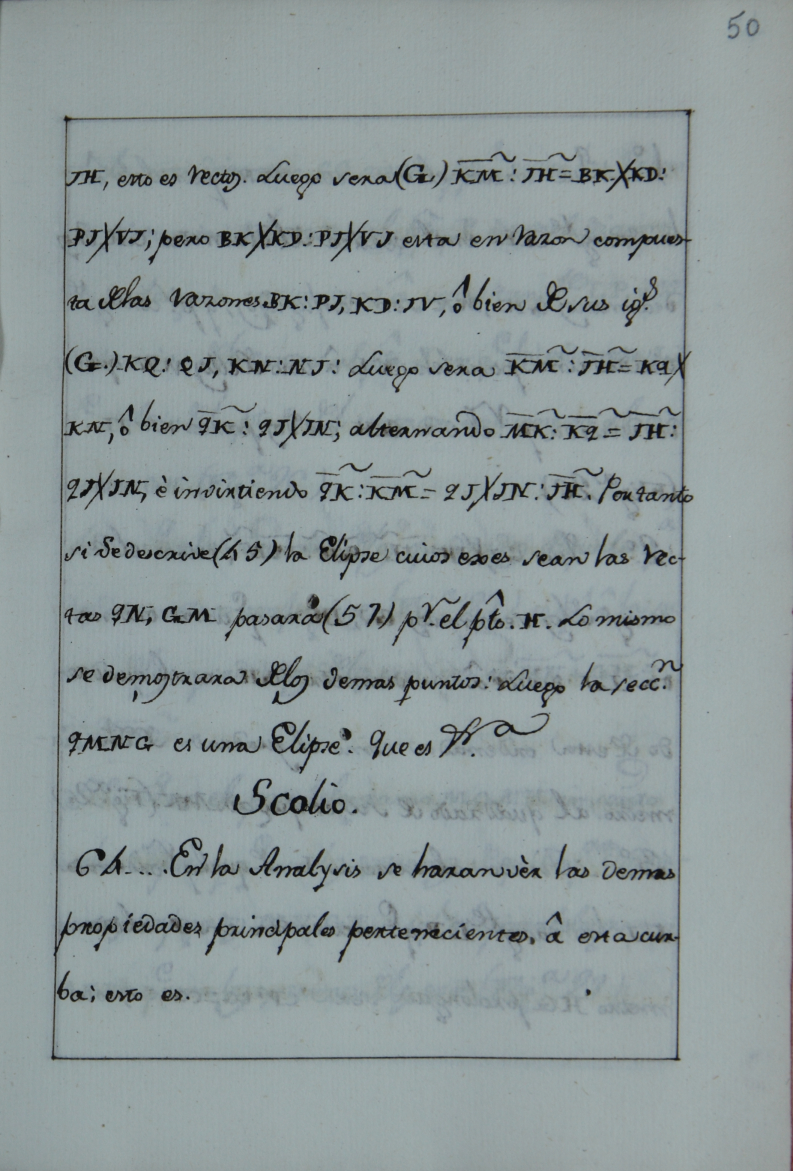 50
JH, esto es rectos. Luego sera (G.) KM : JH = BK X KD :
PJ X VJ; pero BK X KD : PJ X VJ esta en razon compues-
ta de las razones BK : PJ, KD : JV, ô bien de sus igs.
(G.) KQ : QJ, KN : NJ : Luego sera KM : JH = KQ X
KN, ô bien QK : QJ X JN; alternando MK : KQ = JH :
QJ X JN, è invirtiendo QK : KM = QJ X JN : JH. Portanto
si se descrive (45) la Elipse cuios exes sean las rec-
tas QN, GM pasarà (57) pr. el pto. H. Lo mismo
se demostrara de los demas puntos : Luego la secc.n
QMNG es una Elipse. Que es
Scolio.
64.... En la Analysis se haran vèr las demas
propiedades principales pertenecientes, â esta cur-
ba; esto es.